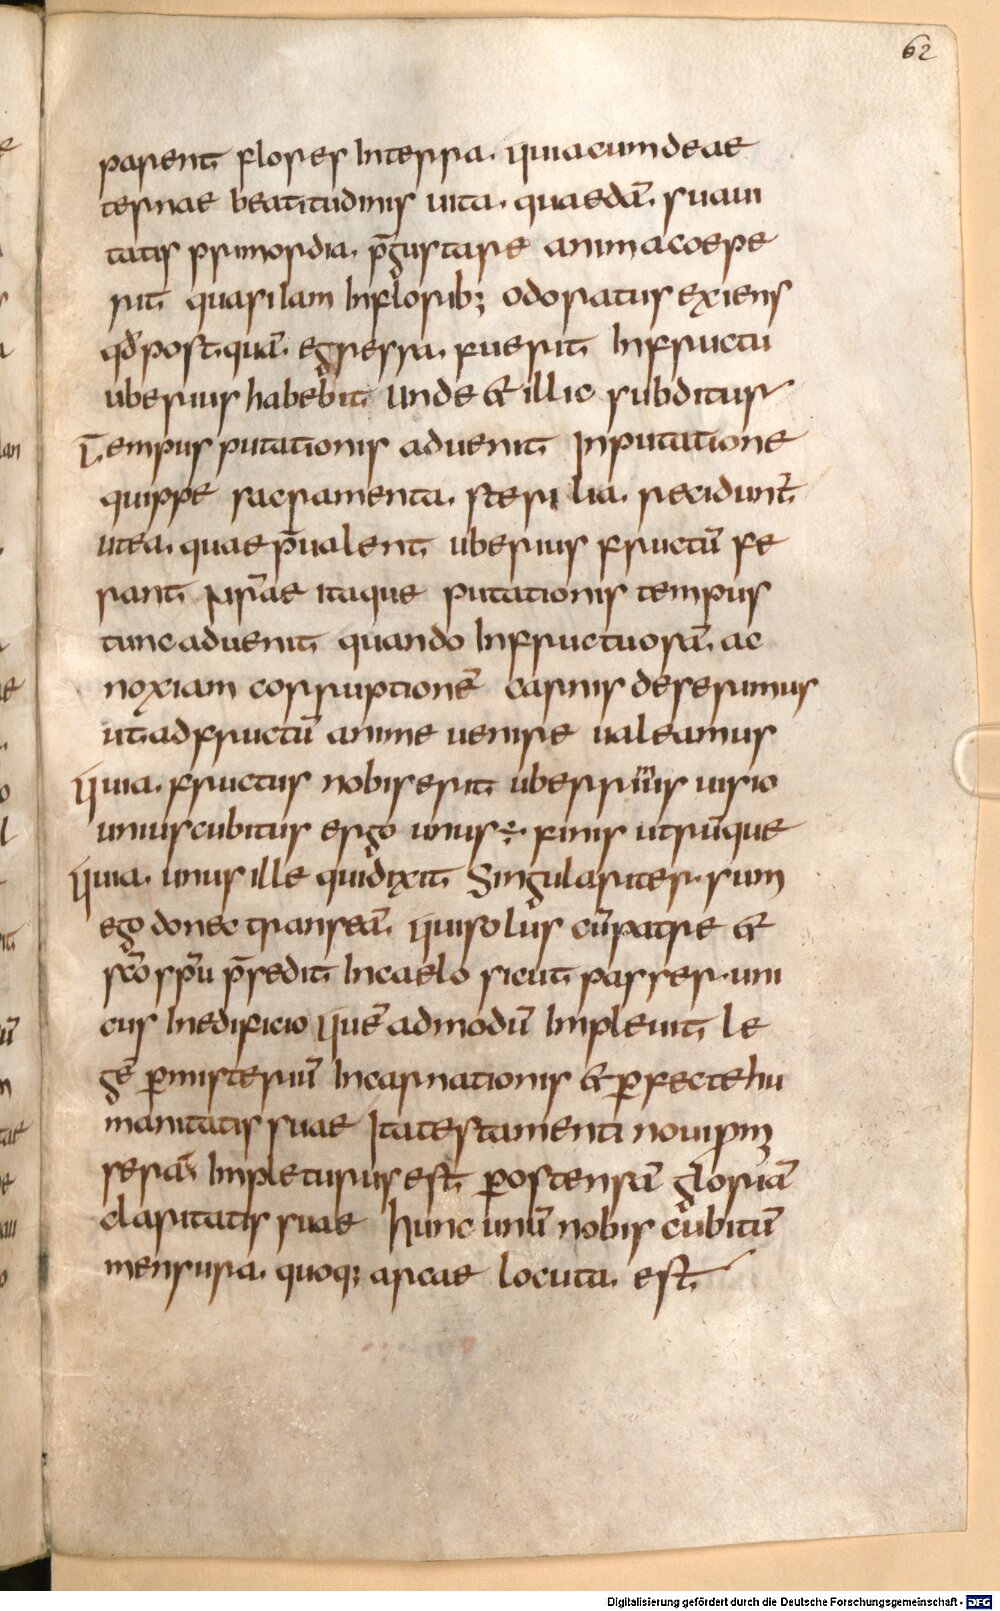 62
parent flores Interra. quia cum de ae
ternae beatitudinis uita. quaedā. suaui
tatis primordia. p̄gustare anima coepe
rit quasi iam In florib; odoratur exiens
qđ post quā. egressa. fuerit In fructu
uberius habebit Unde & illic subditur
Tempus putationis aduenit In putatione
quippe sacramenta. sterilia. recidunt̄
utea. quae p̄ualent uberius fructū fe
rant nr̄ae itaque putationis tempus
tunc aduenit quando Infructuosā. ac
noxiam corruptionē carnis deserimus
ut ad fructū anime uenire ualeamus
Quia. fructus nobis erit uberrimus uisio
unius cubitus ergo unus ÷. finis utrūque
Quia. unus ille qui dixit Singulariter. sum
ego donec transeā. Qui solus cū patre &
sc̄o sp̄u p̄sedit In caelo sicut passer. uni
cus In edificio Quē admodū Impleuit le
gē p misteriū Incarnationis & pfecte hu
manitatis suae Ita testamenti noui pm
serā. Impleturus est postensā gloriā
claritatis suae Hunc unū nobis cubitū
mensura. quoq; arcae locuta. est
Digitalisierung gefördert durch die Deutsche Forschungsgemeinschaft - DFG